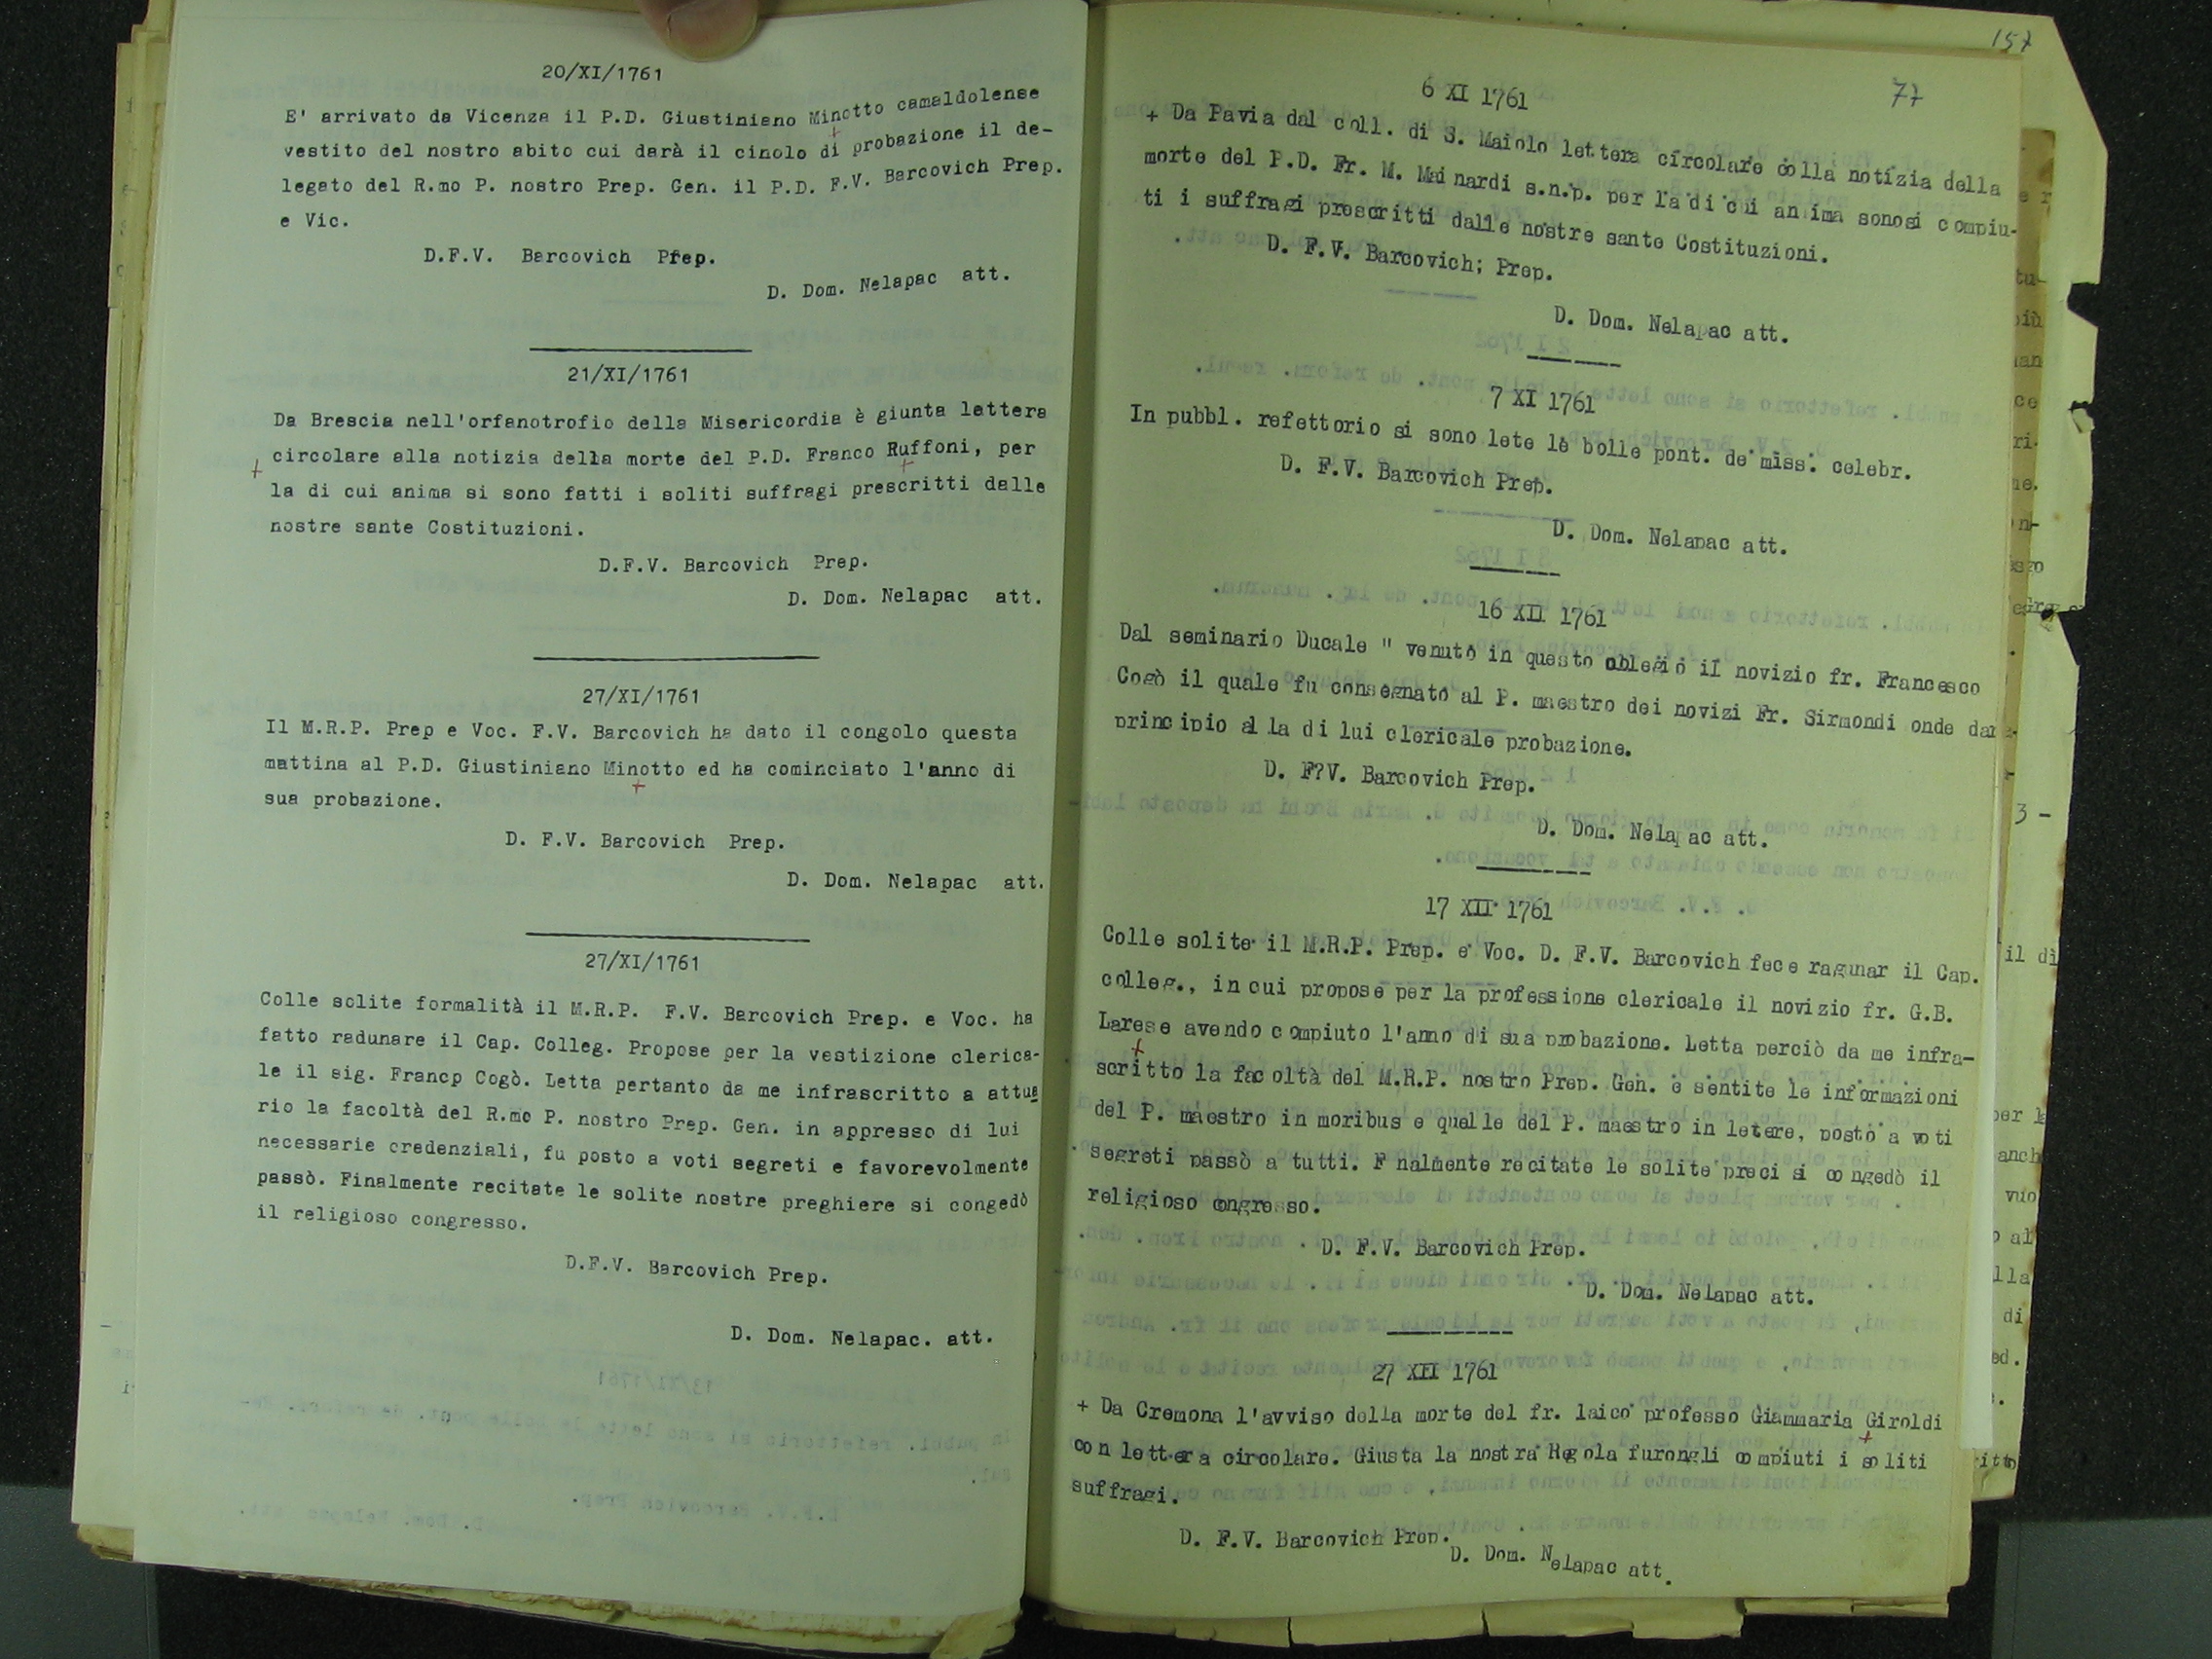 20/XI/1761
E' arrivato da Vicenza il P.D. Giustiniano Minotto camaldolense
vestito del nostro abito cui darà il cinolo di probazione il de-
legato del R.mo P. nostro Prep. Gen. il P.D. F.V. Barcovich Prep.
e Vic.
D.F.V. Barcovich Prep.
D. Dom. Nelapac att.
21/XI/1761
Da Brescia nell'orfanotrofio della Misericordia è giunta lettera
circolare alla notizia della morte del P.D. Franco Ruffoni, per
la di cui anima si sono fatti i soliti suffragi prescritti dalle
nostre sante Costituzioni.
D.F.V. Barcovich Prep.
D. Dom. Nelapac att.
27/XI/1761
Il M.R.P. Prep e Voc. F.V. Barcovich ha dato il congolo questa
mattina al P.D. Giustiniano Minotto ed ha cominciato l'anno di
sua probazione.
D. F.V. Barcovich Prep.
D. Dom. Nelapac att.
27/XI/1761
Colle solite formalità il M.R.P. F.V. Barcovich Prep. e Voc. ha
fatto radunare il Cap. Colleg. Propose per la vestizione clerica-
le il sig. Francp Cogò. Letta pertanto da me infrascritto a attua
rio la facoltà del R.mo P. nostro Prep. Gen. in appresso di lui
necessarie credenziali, fu posto a voti segreti e favorevolmente
passò. Finalmente recitate le solite nostre preghiere si congedò
il religioso congresso.
D.F.V. Barcovich Prep.
D. Dom. Nelapac. att.
157
77
6 XI 1761
+ Da Pavia dal coll. di S. Maiolo lettera circolare colla notizia della
morte del P.D. Fr. M. Mainardi s.n.p. per la di cui anima sonosi compiu-
ti i suffragi prescritti dalle nostre sante Costituzioni.
D. F.V. Barcovich; Prep.
D. Dom. Nelapac att.
7 XI 1761
In pubbl. refettorio si sono lete le bolle pont. de miss. celebr.
D. F.V. Barcovich Prep.
D. Dom. Nelapac att.
16 XII 1761
Dal seminario Ducale " venuto in questo collegio il novizio fr. Francesco
Cogò il quale fu consegnato al P. maestro dei novizi Fr. Sirmondi onde dar
principio alla di lui clericale probazione.
D. F?V. Barcovich Prep.
D. Dom. Nelapac att.
17 XII 1761
Colle solite il M.R.P. Prep. e Voc. D. F.V. Barcovich fece ragunar il Cap.
colleg., in cui propose per la professione clericale il novizio fr. G.B.
Larese avendo compiuto l'anno di sua probazione. Letta perciò da me infra-
scritto la facoltà del M.R.P. nostro Prep. Gen. e sentite le informazioni
del P. maestro in moribus e quelle del P. maestro in letere, posto a voti
segreti passò a tutti. F nalmente recitate le solite preci si congedò il
religioso congresso.
D. F.V. Barcovich Prep.
D. Dom. Nelapac att.
27 XII 1761
+ Da Cremona l'avviso della morte del fr. laico professo Giammaria Giroldi
con lettera circolare. Giusta la nostra Regola furongli compiuti i soliti
suffragi.
D. F.V. Barcovich Prep.
D. Dom. Nelapac att.